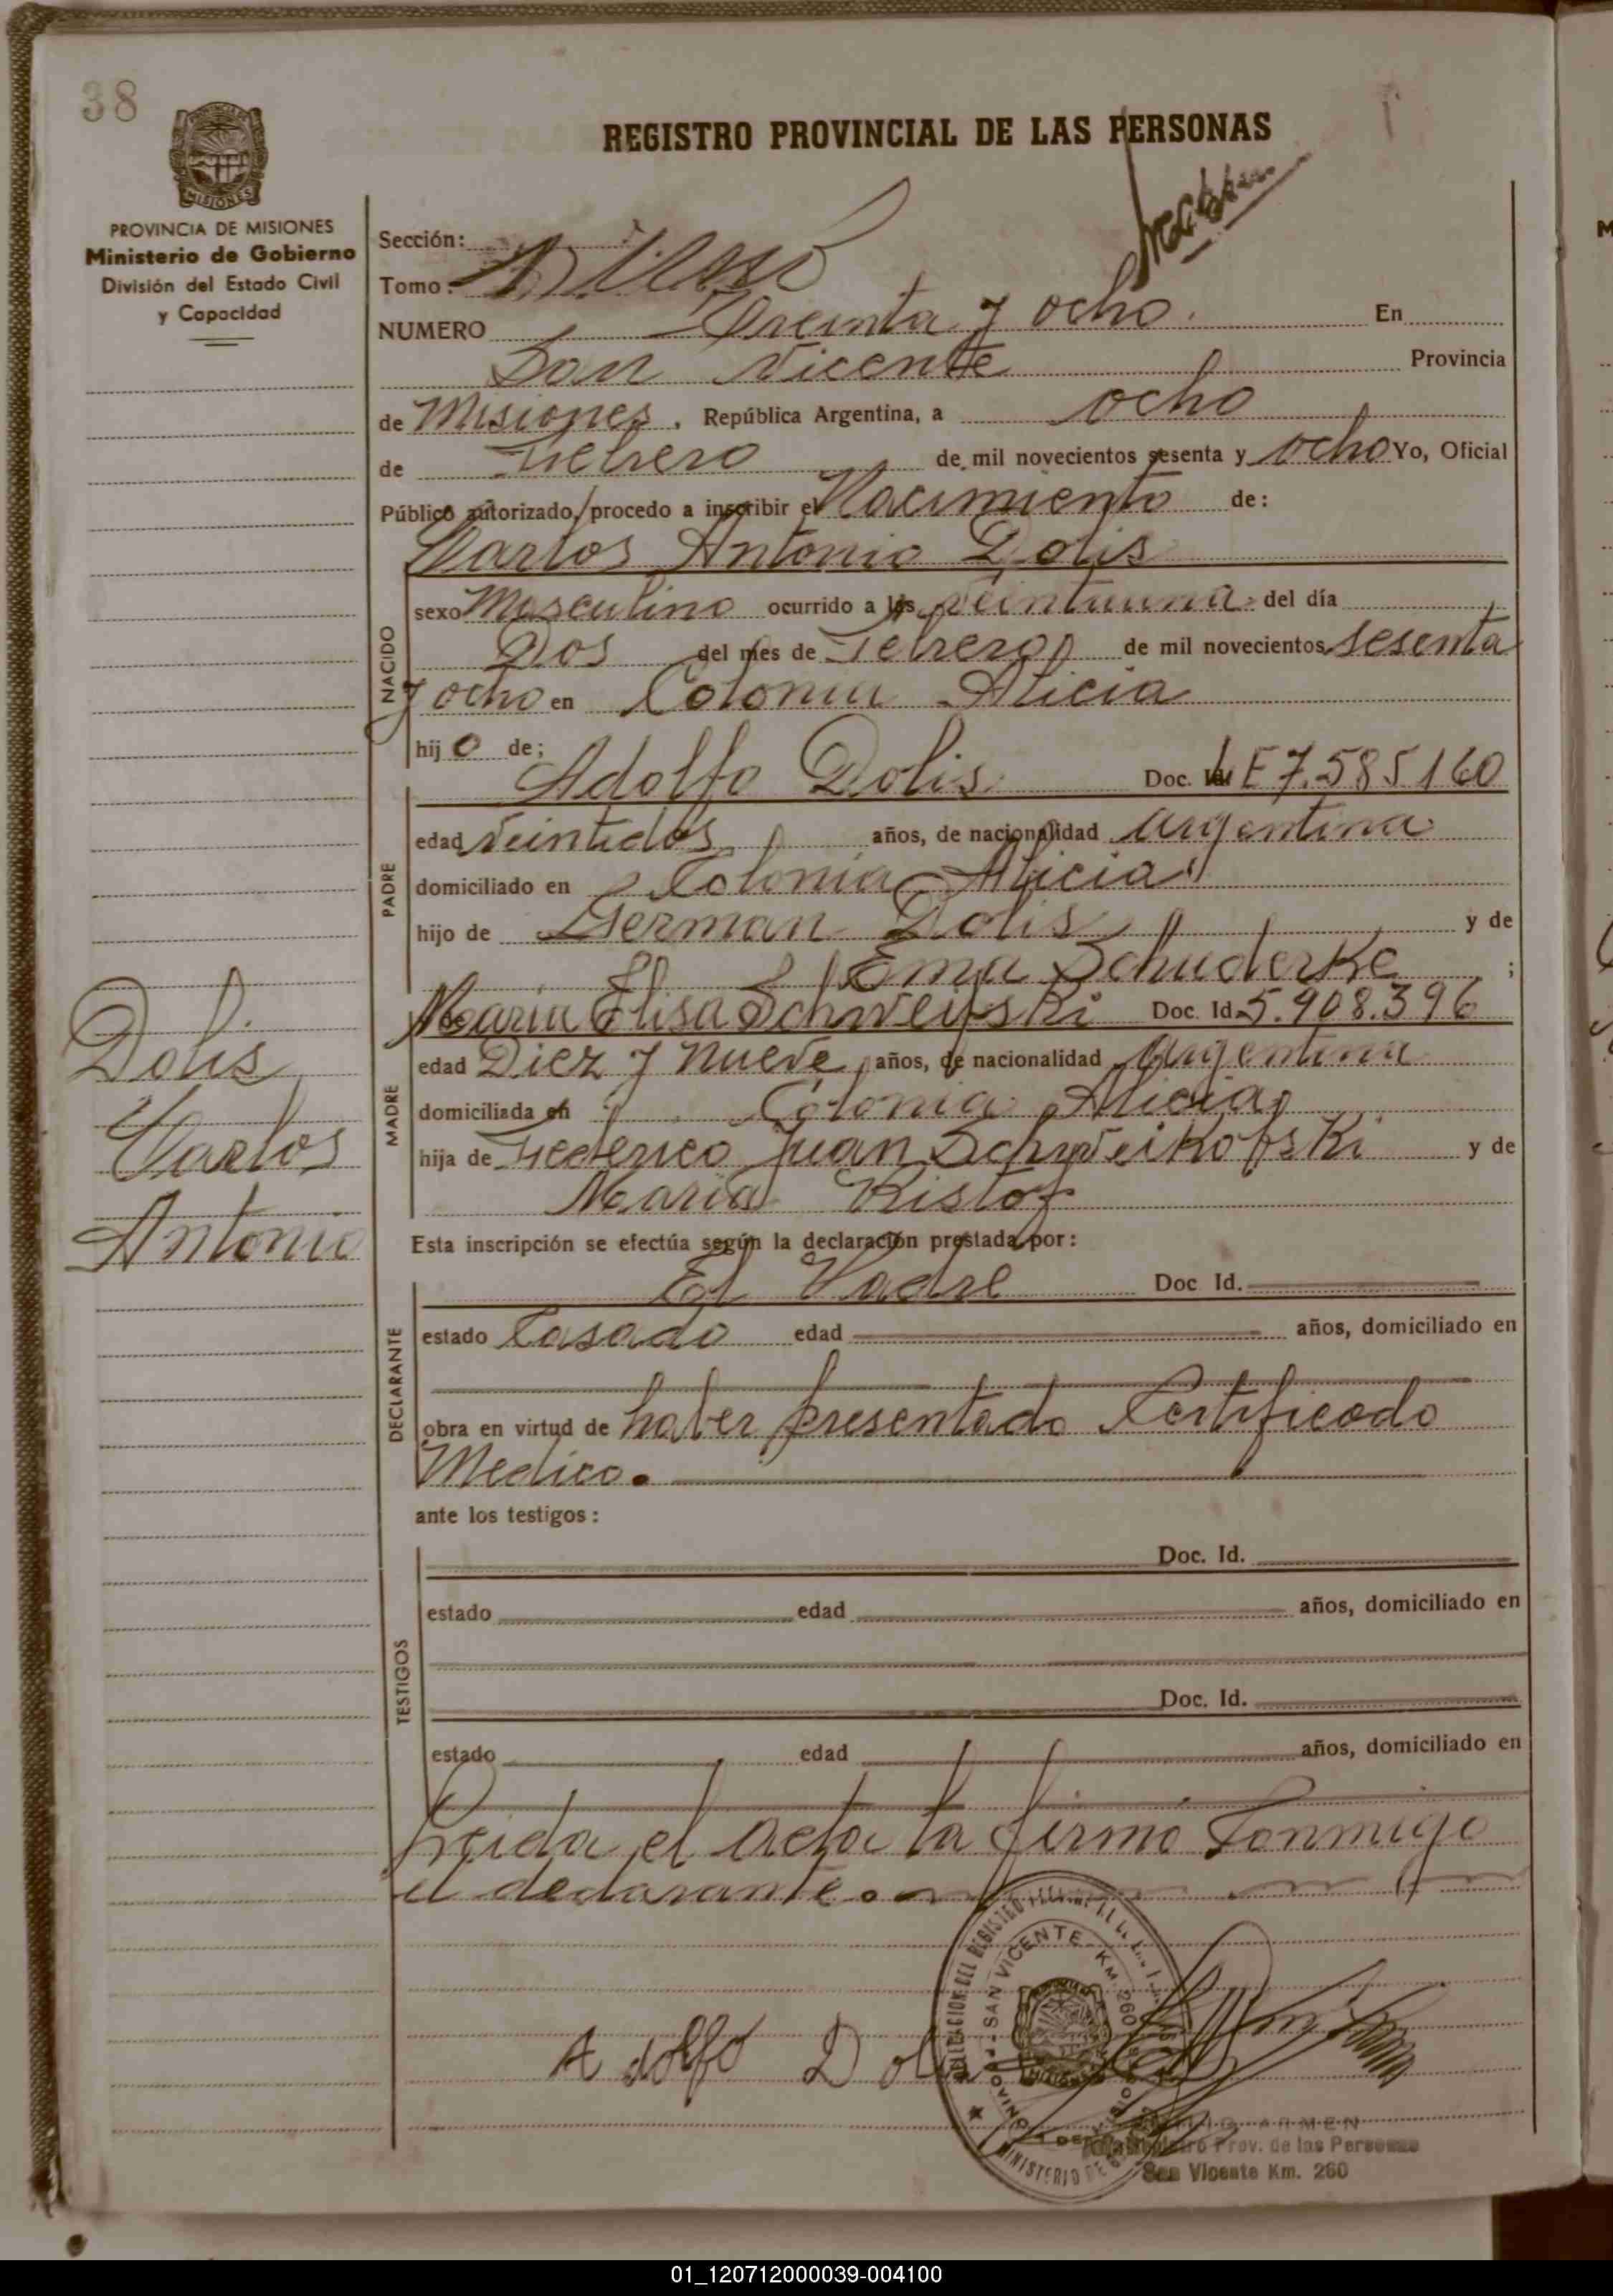 38
REGISTRO PROVINCIAL DE LAS PERSONAS
MISIONES
PROVINCIA DE MISIONES
Ministerio de Gobierno
División del Estado Civil
y Capacidad
Sección:
Tomo:
NUMERO Treinta y ocho. En
San Vicente Provincia
de Misiones, República Argentina, a ocho
de Febrero de mil novecientos sesenta y ocho Yo, Oficial
Público autorizado, procedo a inscribir el Nacimiento de:
Carlos Antonio Dolis
NACIDO
sexo Masculino ocurrido a las veintiuna del día
Dos del mes de Febrero de mil novecientos sesenta
y ocho en Colonia Alicia
hijo de;
Adolfo Dolis Doc. LE 7.585160
PADRE
edad veintidos años, de nacionalidad argentina
domiciliado en Colonia Alicia
hijo de German Dolis y de
Ema Schuderke ;
Maria Elisa Doc. Id. 5.908.396
MADRE
edad Diez y nueve años, de nacionalidad argentina
domiciliada en Colonia Alicia
hija de Federico Juan Schweikofski y de
Maria Kistof
Dolis
Carlos
Antonio
Esta inscripción se efectúa según la declaración prestada por:
El Padre Doc Id.
DECLARANTE
estado Casado edad años, domiciliado en
obra en virtud de haber presentado Certificado
Medico.
ante los testigos:
Doc. Id.
TESTIGOS
estado edad años, domiciliado en
Doc. Id.
estado edad años, domiciliado en
Leida el acta la firmó Conmigo
el declarante.
SAN VICENTE - KM. 260
Adolfo Dolis
MINISTERIO DE
ARMEN
Registro Prov. de las Personas
San Vicente Km. 260
01_120712000039-004100